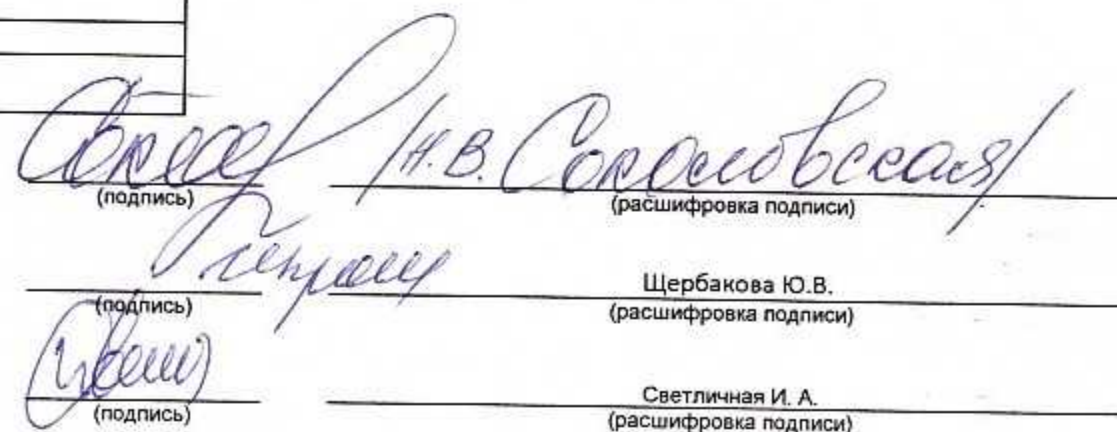 /Н.В. Соколовская/
(подпись) (расшифровка подписи)
Щербакова Ю.В.
(подпись) (расшифровка подписи)
Светличная И. А.
(подпись) (расшифровка подписи)